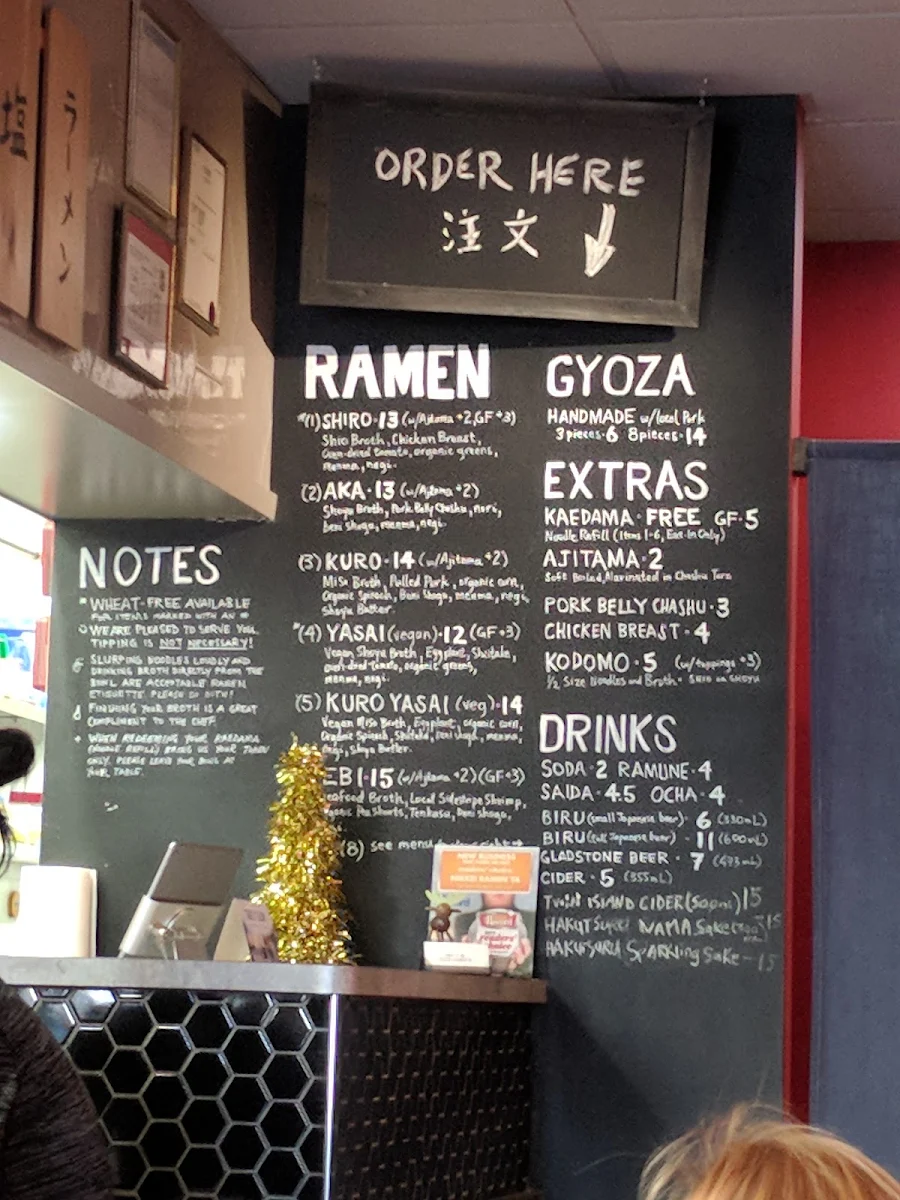 塩
ラーメン
ORDER HERE
注文
RAMEN
*(1) SHIRO·13 (w/Ajitama +2, GF +3)
Shio Broth, Chicken Breast,
Oven-dried tomato, organic greens,
menma, negi.
(2) AKA·13 (w/Ajitama +2)
Shoyu Broth, Pork Belly Chashu, nori,
Beni shoga, menma, negi.
(3) KURO·14 (w/Ajitama +2)
Miso Broth, Pulled Pork, organic corn,
Organic Spinach, Beni Shoga, menma, negi,
Shoyu Butter.
*(4) YASAI (vegan)·12 (GF+3)
Vegan Shoyu Broth, Eggplant, Shiitake,
oven-dried tomato, organic greens,
menma, negi.
(5) KURO YASAI (veg)·14
Vegan Miso Broth, Eggplant, organic corn,
Organic Spinach, Shiitake, Beni shoga, menma,
negi, Shoyu Butter.
EBI·15 (w/Ajitama +2) (GF+3)
Seafood Broth, Local Sidestripe Shrimp,
Organic Pea Shoots, Tenkasu, Beni shoga,
(8) see menu
GYOZA
HANDMADE w/local Pork
3 pieces·6 8 pieces·14
EXTRAS
KAEDAMA·FREE GF·5
Noodle Refill (Items 1-6, Eat-In Only)
AJITAMA·2
Soft Boiled, Marinated in Chashu Tare
PORK BELLY CHASHU·3
CHICKEN BREAST·4
KODOMO·5 (w/toppings +3)
1/2 Size Noodles and Broth - SHIO or SHOYU
DRINKS
SODA·2 RAMUNE·4
SAIDA·4.5 OCHA·4
BIRU (small Japanese beer)·6 (330mL)
BIRU (full Japanese beer)·11 (600mL)
GLADSTONE BEER·7 (473mL)
CIDER·5 (355mL)
Twin ISLAND CIDER (500ml) 15
HAKUTSURU NAMA Sake 15
HAKUTSURU SPARKling Sake - 15
NOTES
* WHEAT-FREE AVAILABLE
FOR ITEMS MARKED WITH AN *
WE ARE PLEASED TO SERVE YOU.
TIPPING IS NOT NECESSARY!
SLURPING NOODLES LOUDLY AND
DRINKING BROTH DIRECTLY FROM THE
BOWL ARE ACCEPTABLE RAMEN
ETIQUETTE. PLEASE DO BOTH!
FINISHING YOUR BROTH IS A GREAT
COMPLIMENT TO THE CHEF.
WHEN REDEEMING YOUR KAEDAMA
(NOODLE REFILL) BRING US YOUR TOKEN
ONLY. PLEASE LEAVE YOUR BOWL AT
YOUR TABLE.
NEW BUSINESS
readers'
choice